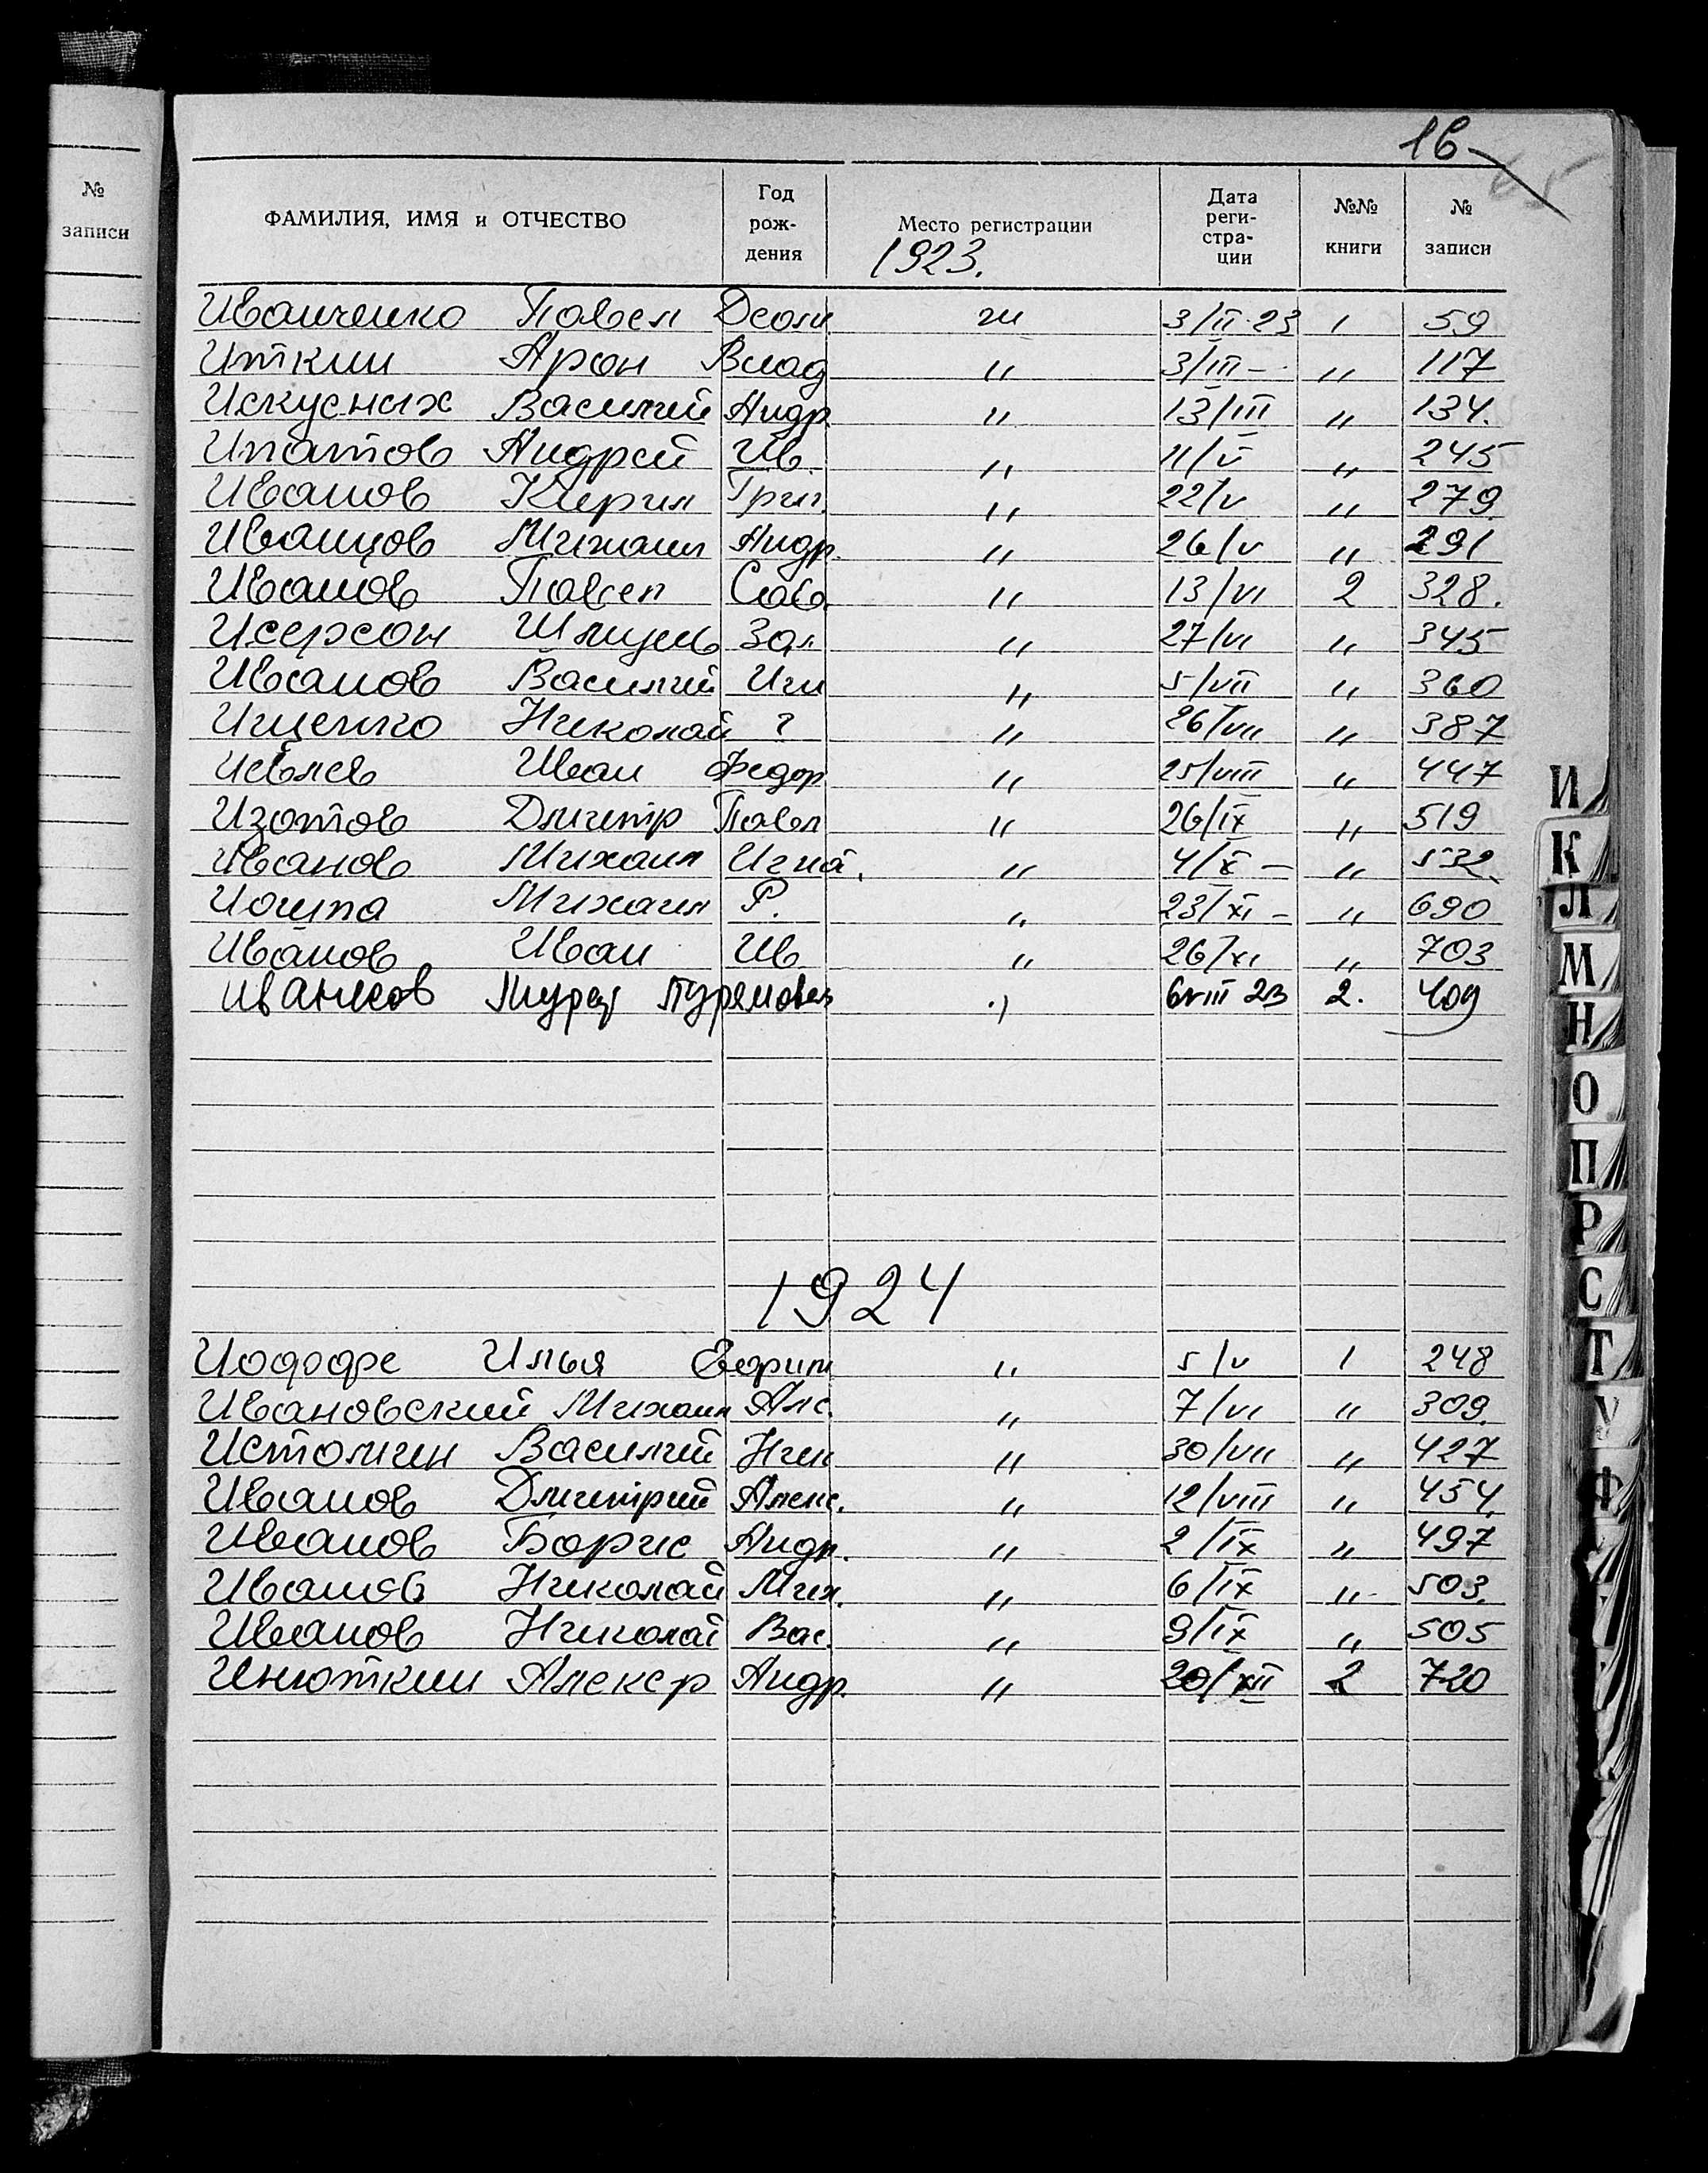 16
65
№ записи
ФАМИЛИЯ, ИМЯ и ОТЧЕСТВО Год рож- дения Место регистрации Дата реги- стра- ции №№ книги № записи
1923.
Иванченко Павел 3/II-23 1 59
Иткин Арон Влад " 3/III - " 117
Искусных Василий Андр. " 13/III " 134.
Ипатов Андрей Ив. " 11/V " 245
Иванов Кирил Григ. " 22/V " 279
Иванцов Михаил Андр. " 26/V " 291
Иванов Павел Сав. " 13/VI 2 328.
Исерсон Зал. " 27/VI " 345
Иванов Василий " 5/VII " 360
Ищенко Николай ? " 26/VII " 387
Иевлев Иван Федор " 25/VIII " 447
Изотов Дмитр Павел " 26/IX " 519
Иванов Михаил Игна. " 4/X - " 532.
Михаил Р. " 23/XI - " 690
Иванов Иван Ив " 26/XI " 703
Иванков " 6 VIII 23 2. 409
1924
Иоффе Илья Ефрим " 5/V 1 248
Ивановский Михаил Алс. " 7/VI " 309.
Истомин Василий Ник " 30/VII " 427
Иванов Дмитрий Алекс. " 12/VIII " 454.
Иванов Борис Андр. " 2/IX " 497
Иванов Николай Мих. " 6/IX " 503.
Иванов Николай Вас. " 9/IX " 505
Инюткин Алекср Андр. " 20/XII 2 720
И
К
Л
М
Н
О
П
Р
С
Т
У
Ф